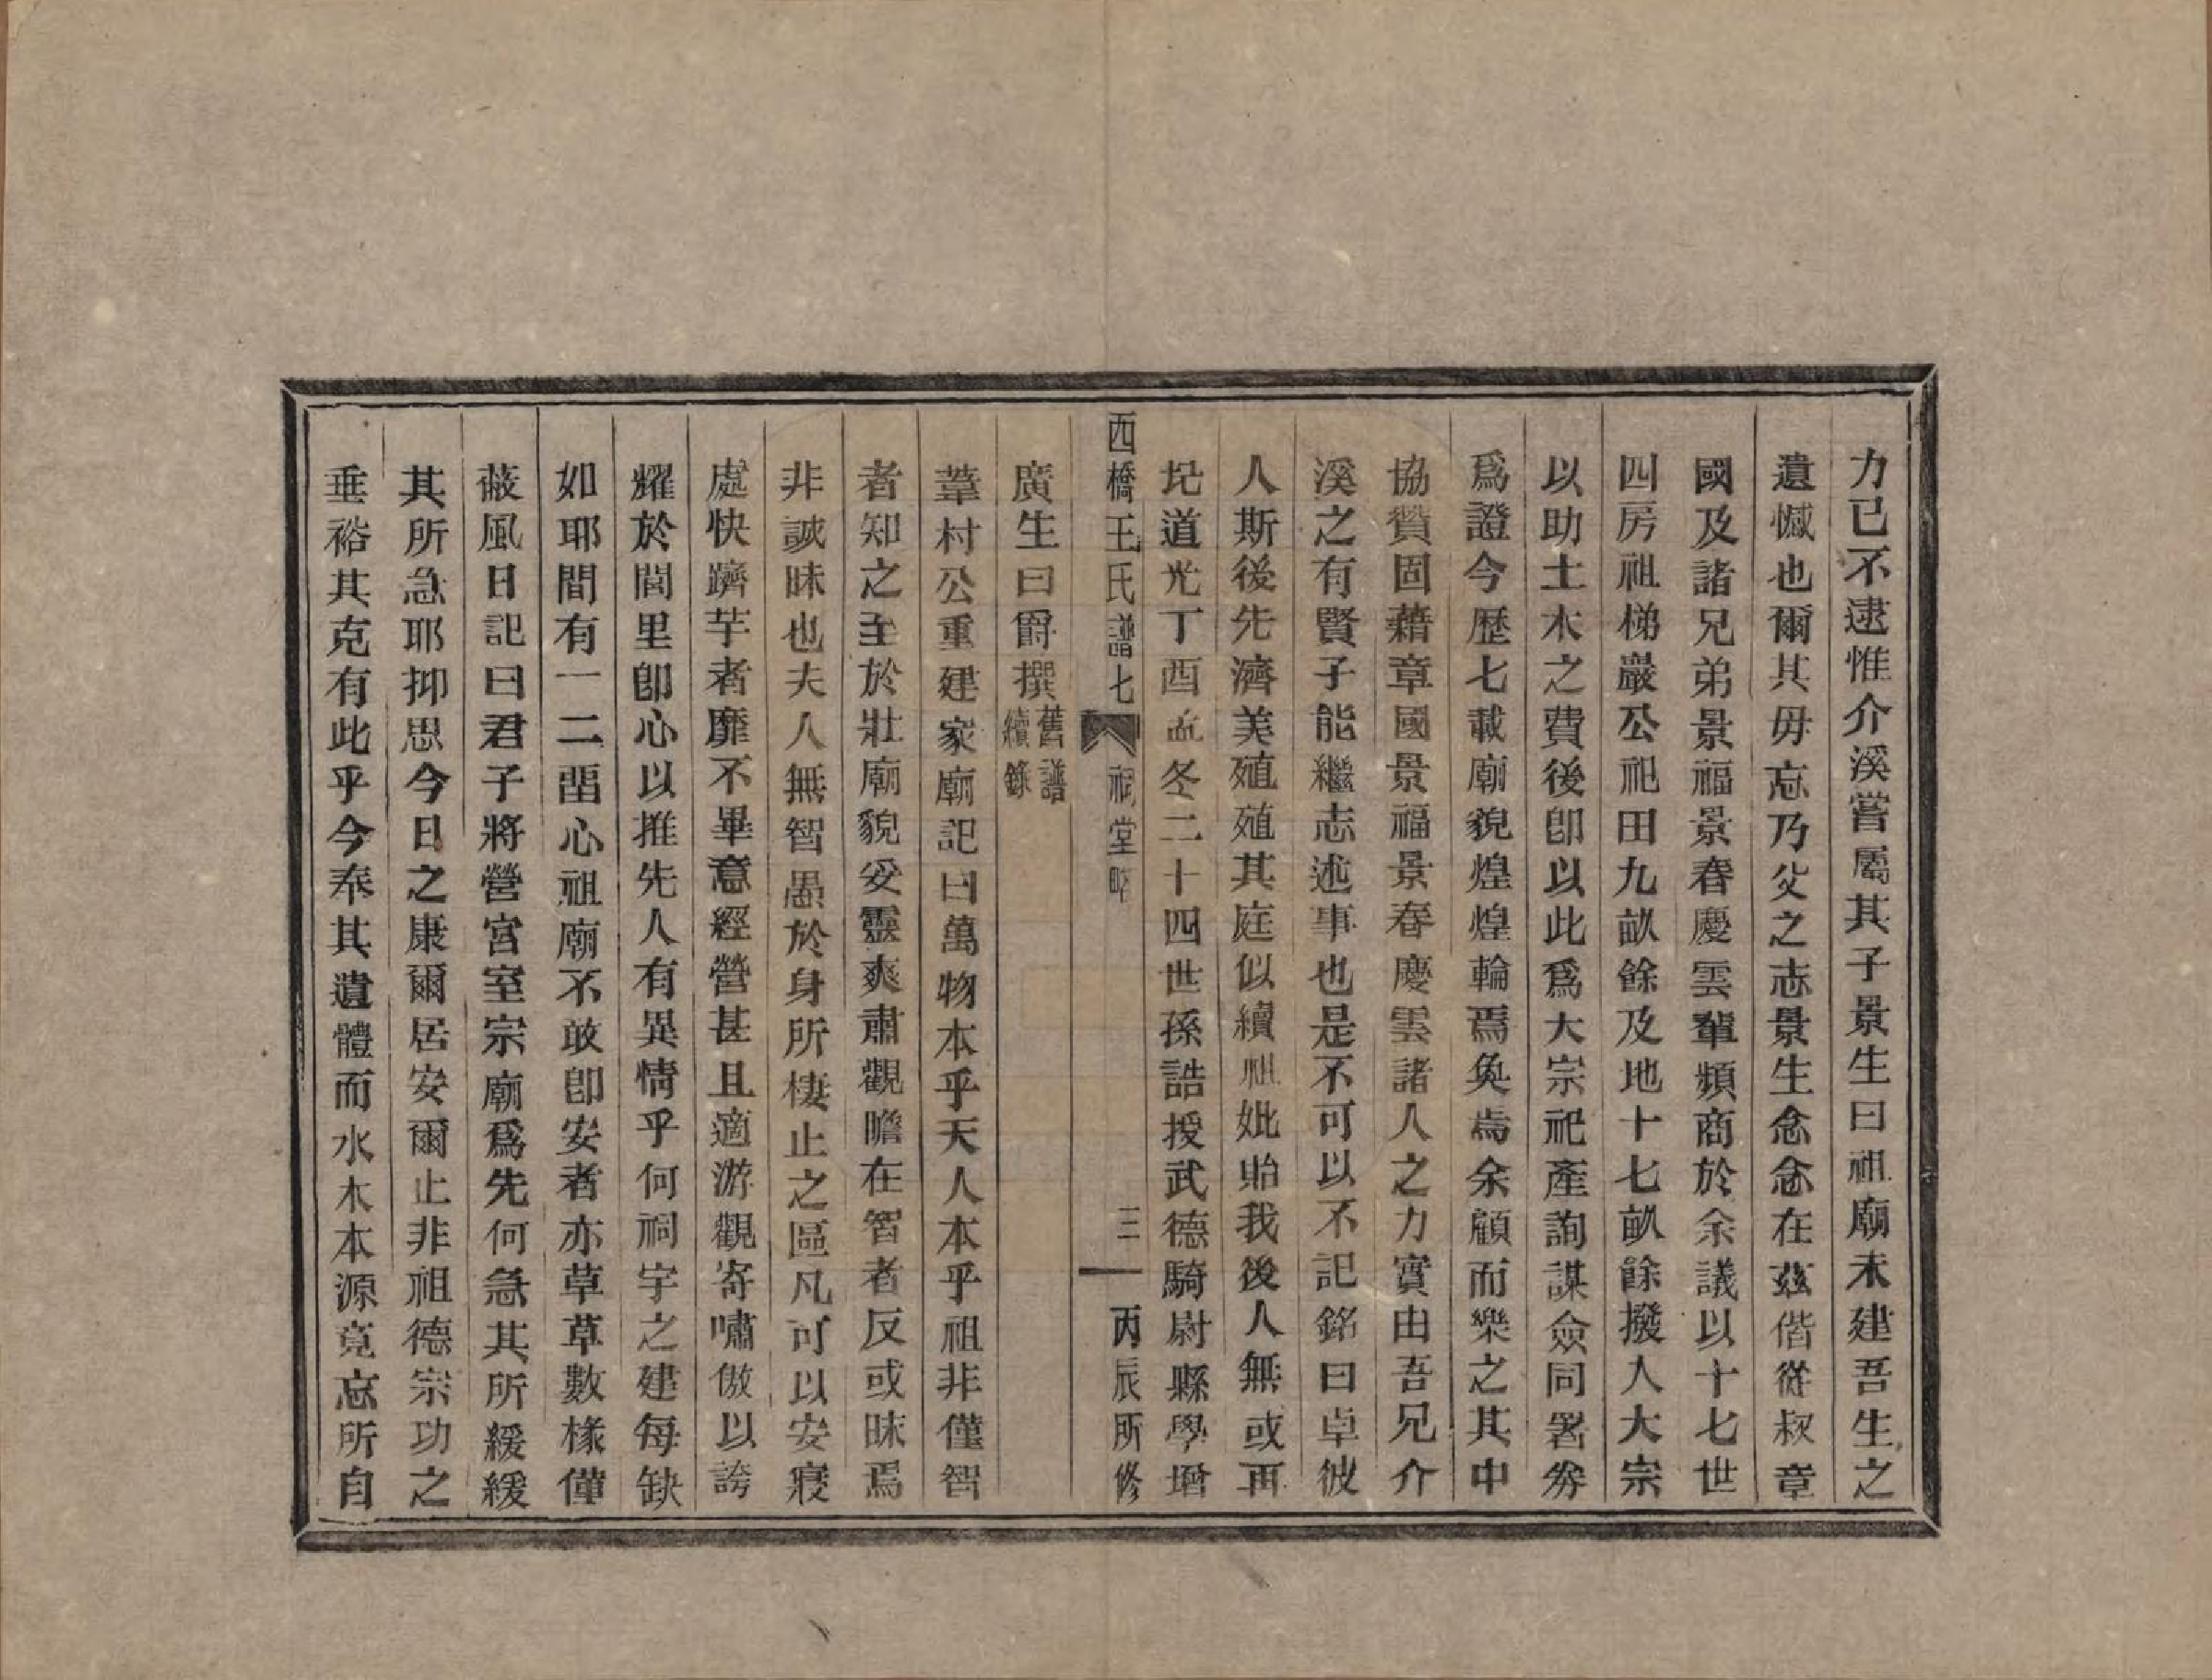 力已不逮惟介溪嘗屬其子景生曰祖廟未建吾生之
遺憾也爾其毋忘乃父之志景生念念在茲偕從叔章
國及諸兄弟景福景春慶雲輩頻商於余議以十七世
四房祖梯巖公祀田九畝餘及地十七畝餘撥人大宗
以助土木之費後卽以此爲大宗祀產詢謀僉同署券
爲證今歷七載廟貌煌煌輪焉奐焉余顧而樂之其中
協贊固藉章國景福景春慶雲諸人之力實由吾兄介
溪之有賢子能繼志述事也是不可以不記銘曰卓彼
人斯後先濟美殖殖其庭似續祖妣貽我後人無或再
圮道光丁酉孟冬二十四世孫誥授武德騎尉縣學增
西橋王氏譜七 祠堂略 三 丙辰所修
廣生曰爵撰舊譜續錄
葦村公重建家廟記曰萬物本乎天人本乎祖非僅智
者知之至於壯廟貌妥靈爽肅觀瞻在智者反或昧焉
非誠昧也夫人無智愚於身所棲止之區凡可以安寢
處快躋芋者靡不畢意經營甚且適游觀寄嘯傲以誇
耀於閭里卽心以推先人有異情乎何祠宇之建每缺
如耶間有一二畱心祖廟不敢卽安者亦草草數椽僅
蔽風日記曰君子將營宮室宗廟爲先何急其所緩緩
其所急耶抑思今日之康爾居安爾止非祖德宗功之
垂裕其克有此乎今奉其遺體而水木本源竟忘所自